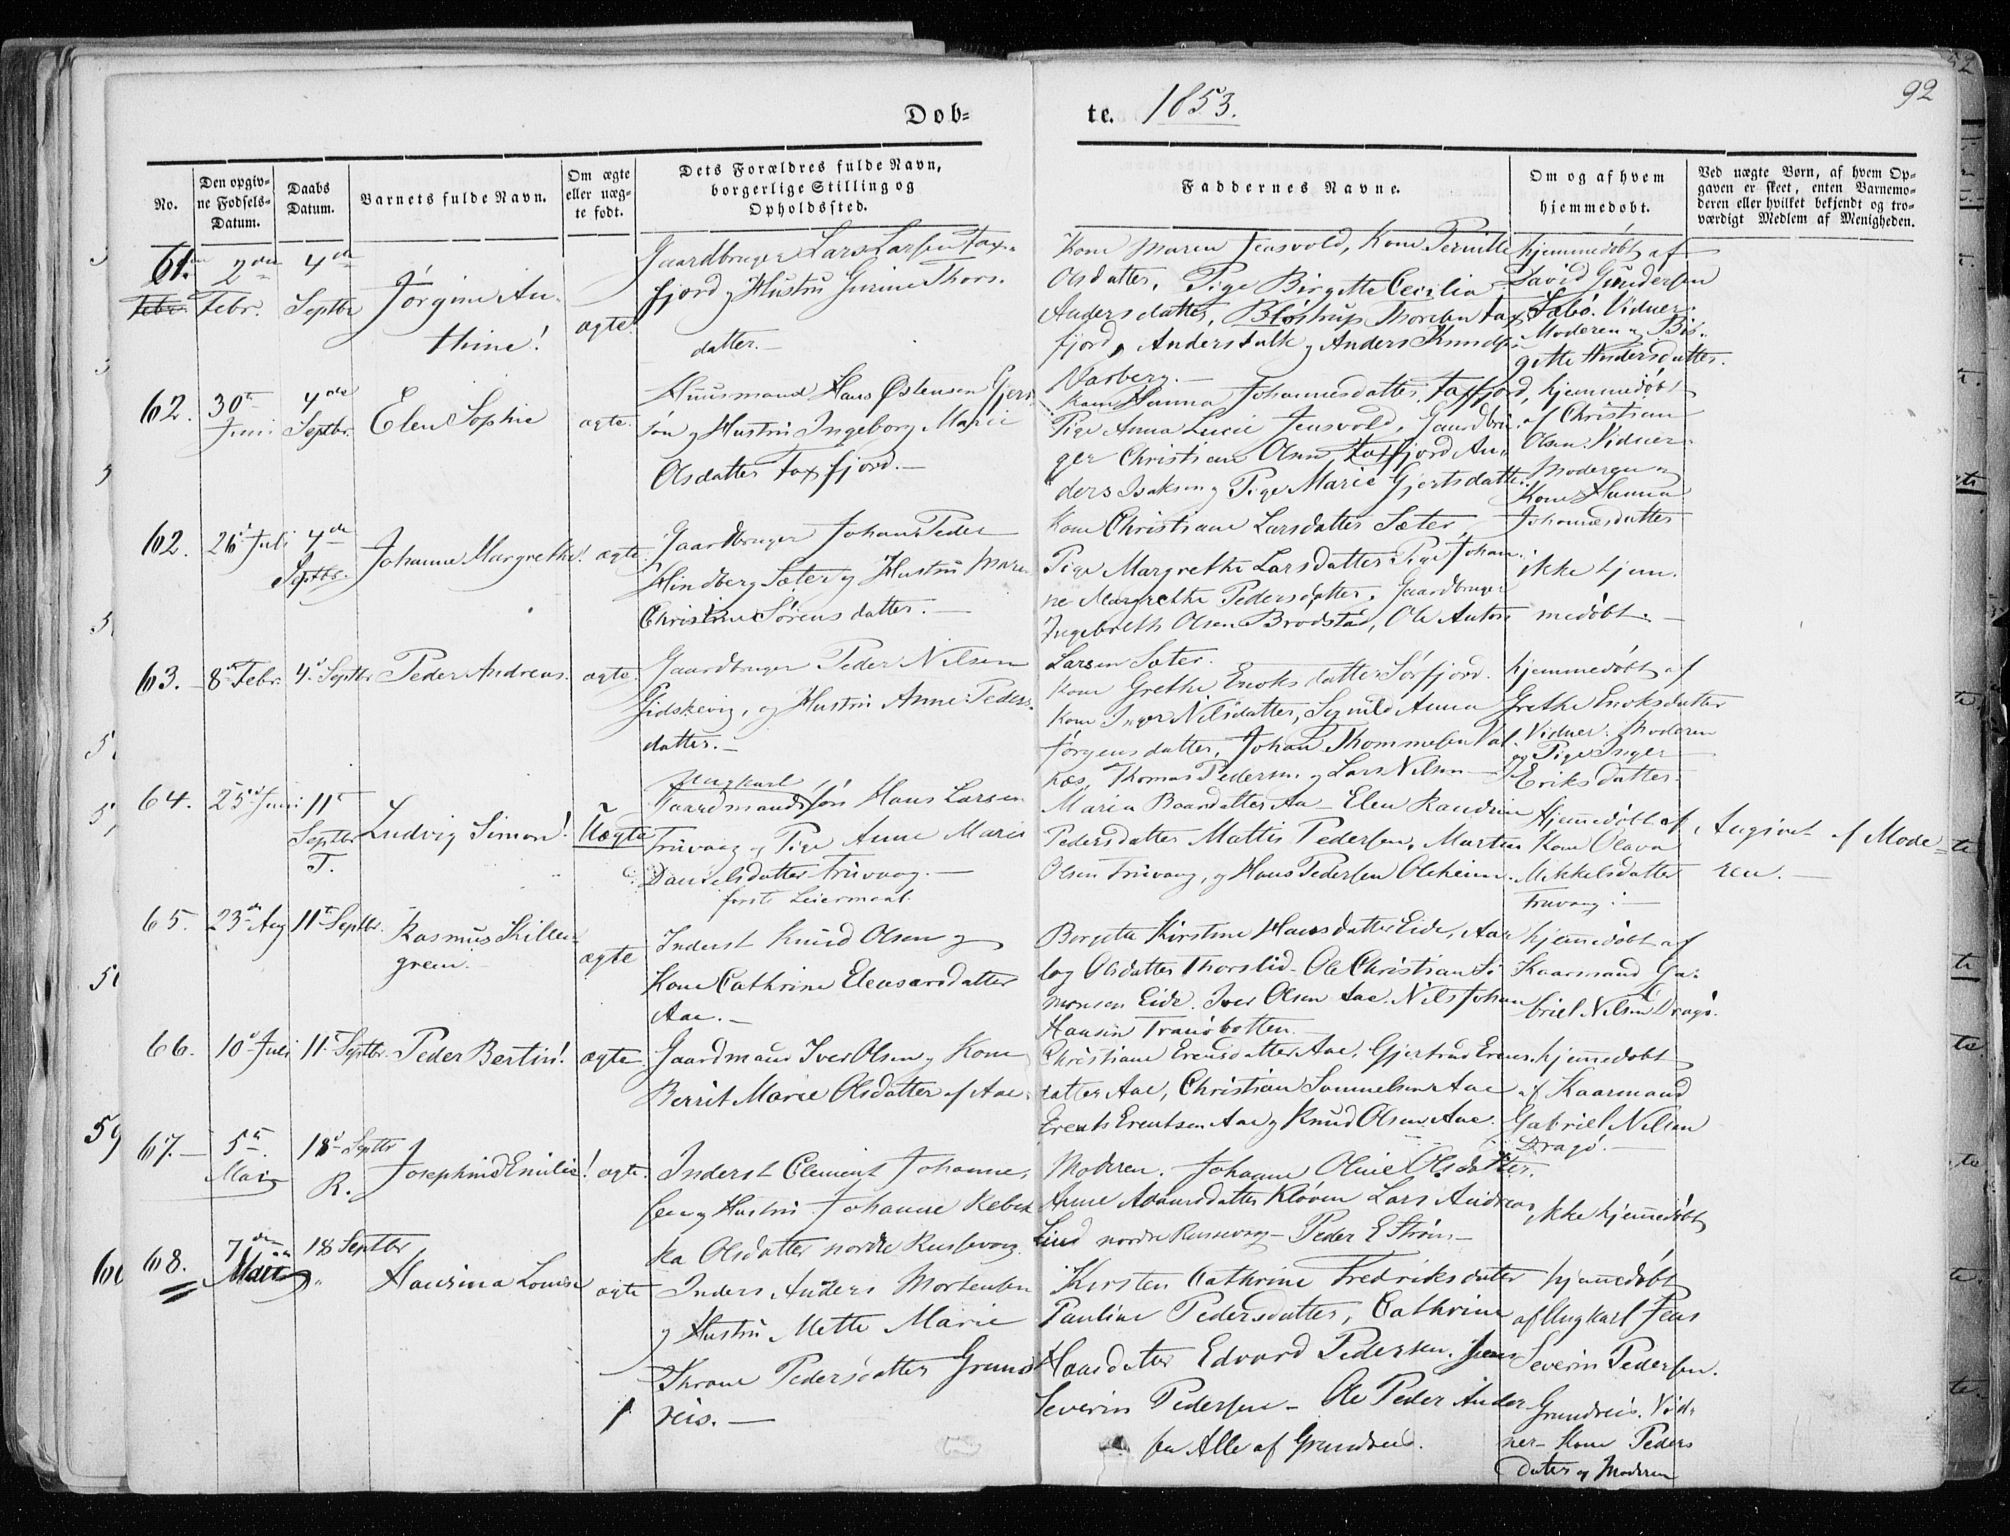 92
Døb- te. 1853.
No.
Den opgiv-
ne Fødsels-
Datum.
Daabs
Datum.
Barnets fulde Navn.
Om ægte
eller uæg-
te født.
Dets Forældres fulde Navn,
borgerlige Stilling og
Opholdssted.
Faddernes Navne.
Om og af hvem
hjemmedøbt.
Ved uægte Børn, af hvem Op-
gaven er skeet, enten Barnemo-
deren eller hvilket bekjendt og tro-
værdigt Medlem af Menigheden.
61.
2den
Febr.
4de
Septbr
Jørgine An-
thine!
ægte
Gaardbruger Lars Larsen Tax-
fjord og Hustru Gurine Thors-
datter.—
Kone Maren Jensvold, Kone Pernille
Olsdatter, Pige Birgette Cecilia
Andersdatter, Bløstrup Morten Tax
fjord, Anders Falk og Anders Knuds
Varberg.—
hjemmedøbt af
David Gundersen
Sæbø. Vidner:
Moderen og Bir-
gette Andersdatter.
62.
30te
Juni
4de
Septbr.
Elen Sophie
ægte.
Huusmand Hans Østensen Gjers
søn og Hustru Ingeborg Marie
Olsdatter Taxfjord.—
Kone Hanna Johannesdatter, Taxfjord,
Pige Anna Lucie Jensvold, Gaardbru-
ger Christian Olsen, Taxfjord An-
ders Isaksen og Pige Marie Gjertsdatter
hjemmedøbt
af Christian
Olsen. Vidner:
Moderen og
Kone Hanna
Johannesdatter
62.
26d Juli
4de
Septbr.
Johanne Margrethe!
ægte.
Gaardbruger Johan Peder
Hindberg Sæter og Hustru Maren
Christine Sørensdatter.—
Kone Christiane Larsdatter Sæter
Pige Margrethe Larsdatter Pige Johan-
ne Margrethe Pedersdatter, Gaardbruger
Ingebreth Olsen Brodstad, Ole Anton
Larsen Sæter.
ikke hjem-
medøbt.—
63.
8de Febr.
4d Septbr
Peder Andreas.
ægte.
Gaardbruger Peder Nilsen
Gidskevig, og Hustru Anne Peders-
datter.—
Kone Grethe Enoksdatter Sørfjord.
Kone Inger Nilsdatter, Signild Anna
Jørgensdatter, Johan Thommesen Val-
næs, Thomas Pedersen og Lars Nilsen
hjemmedøbt af
Grethe Enoksdatter
Vidner: Moderen
og Pige Inger
Eriksdatter.
64.
25d Juni
11te
Septbr
T.
Ludvig Simon!
Uægte
Ungkarl
Gaardmandssøn Hans Larsen
Truvaag og Pige Anne Marie
Danielsdatter Truvaag.—
første Leiermaal.
Maria Baardatter Aa— Elen Randine
Pedersdatter Mattis Pedersen, Martin
Olsen Truvaag, og Hans Pedersen Oleheim.
Hjemmedøbt af
Kone Olava
Mikkelsdatter
Truvaag.—
Angivet af Mode-
ren.—
65.
23de Aug
11te Septbr.
Rasmus Killen-
green.
ægte
Inderst Knud Olsen og
Kone Cathrine Eleasarsdatter
Aae.—
Bergitta Kirstine Hansdatter Eide, Aas-
log Olsdatter Thorslid— Ole Christian Si-
monsen Eide. Iver Olsen Aae. Nils Johan
Hansen Tranøbotten.
hjemmedøbt af
Kaarmand Ga-
briel Nilsen Dragø.
66.
10d Juli
11te Septbr.
Peder Bertin!
ægte
Gaardmand Iver Olsen og Kone
Berrit Marie Olsdatter af Aae.
Christiane Erensdatter Aae. Gjertrud Erens-
datter Aae, Christian Sammelsen Aae
Erents Erentsen Aae og Knud Olsen Aae.
hjemmedøbt
af Kaarmand
Gabriel Nilsen
Dragø.—
67.—
5te
Mai
18d Septbr
R.
Josephine Emilie!
ægte.
Inderst Clement Johanne-
sen og Hustru Johanne Rebek
ka Olsdatter nordre Russevaag.
Moderen. Johanne Oline Olsdatter.
Anne Adamsdatter Kløven Lars Andreas
Lind nordre Russevaag— Peder E Strøm—
ikke hjemmedøbt
68.
7de
Mai
18 Septbr
Hansina Lovise
ægte
Inders Anders Mortensen
og Hustru Mette Marie
Throne Pedersdatter Grund
reis.—
Kirsten Cathrine Fredriksdatter
Pauline Pedersdatter, Cathrine
Hansdatter Edvard Pedersen. Jens
Severin Pedersen— Ole Peder Ander
sen Alle af Grundreis.
hjemmedøbt
af Ungkarl Jens
Severin Pedersen.
Grundreis. Vid-
ner— Kone Peders
datter og Moderen